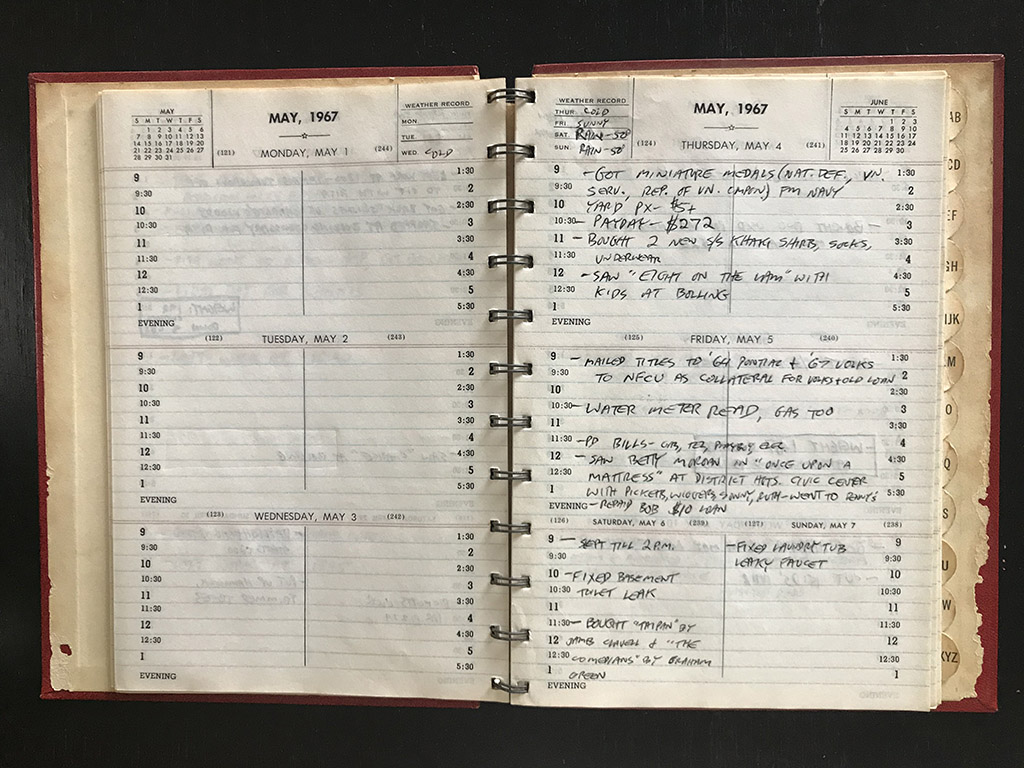 MAY
S M T W T F S
1 2 3 4 5 6
7 8 9 10 11 12 13
14 15 16 17 18 19 20
21 22 23 24 25 26 27
28 29 30 31
MAY, 1967
WEATHER RECORD
MON.
TUE
WED. COLD
(121) MONDAY, MAY 1 (244)
9 1:30
9:30 2
10 2:30
10:30 3
11 3:30
11:30 4
12 4:30
12:30 5
1 5:30
EVENING
(122) TUESDAY, MAY 2 (243)
9 1:30
9:30 2
10 2:30
10:30 3
11 3:30
11:30 4
12 4:30
12:30 5
1 5:30
EVENING
(123) WEDNESDAY, MAY 3 (242)
9 1:30
9:30 2
10 2:30
10:30 3
11 3:30
11:30 4
12 4:30
12:30 5
1 5:30
EVENING
WEATHER RECORD
THUR. COLD
FRI. SUNNY
SAT. RAIN-50°
SUN. RAIN-50°
MAY, 1967
JUNE
S M T W T F S
1 2 3
4 5 6 7 8 9 10
11 12 13 14 15 16 17
18 19 20 21 22 23 24
25 26 27 28 29 30
(124) THURSDAY, MAY 4 (241)
9 - GOT MINIATURE MEDALS (NAT. DEF., VN. 1:30
9:30 SERV. REP. OF VN. CMPN) FM NAVY 2
10 YARD PX- $5+ 2:30
10:30 - PAYDAY- $272 3
11 - BOUGHT 2 NEW S/S KHAKI SHIRTS, SOCKS, 3:30
11:30 UNDERWEAR 4
12 - SAW "EIGHT ON THE LAM" WITH 4:30
12:30 KIDS AT BOLLING 5
1 5:30
EVENING
(125) FRIDAY, MAY 5 (240)
9 - MAILED TITLES TO '64 PONTIAC + '67 VOLKS 1:30
9:30 TO NFCU AS COLLATERAL FOR VOLKS + OLD LOAN 2
10 2:30
10:30 - WATER METER READ, GAS TOO 3
11 3:30
11:30 - PD BILLS- PLAYBOY, ELEC 4
12 - SAW BETTY MORGAN IN "ONCE UPON A 4:30
12:30 MATTRESS" AT DISTRICT HGTS. CIVIC CENTER 5
1 WITH PICKETS, SUNNY, RUTH- WENT TO PENNY'S 5:30
EVENING - REPAID BOB $10 LOAN
(126) SATURDAY, MAY 6 (239) (127) SUNDAY, MAY 7 (238)
9 - SLEPT TILL 2 P.M. - FIXED LAUNDRY TUB 9
9:30 LEAKY FAUCET 9:30
10 - FIXED BASEMENT 10
10:30 TOILET LEAK 10:30
11 11
11:30 - BOUGHT "TAIPAN" BY 11:30
12 JAMES CLAVELL + "THE 12
12:30 COMEDIANS" BY GRAHAM 12:30
1 GREEN 1
EVENING EVENING
AB
CD
EF
GH
IJK
LM
O
Q
S
U
W
XYZ